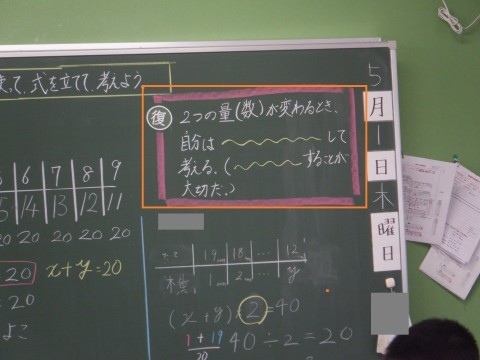 って、式を立てて、考えよう
復 2つの量(数)が変わるとき、
自分は 〜〜〜 して
考える。(〜〜〜 することが
大切だ。)
5
月
1
日
木
曜
日
6 7 8 9
14 13 12 11
20 20 20 20 20
20 x+y=20
=20
よこ
たて 19 18 … 12
1 2 … y
(x+y)×2=40
1+19
20
40÷2=20